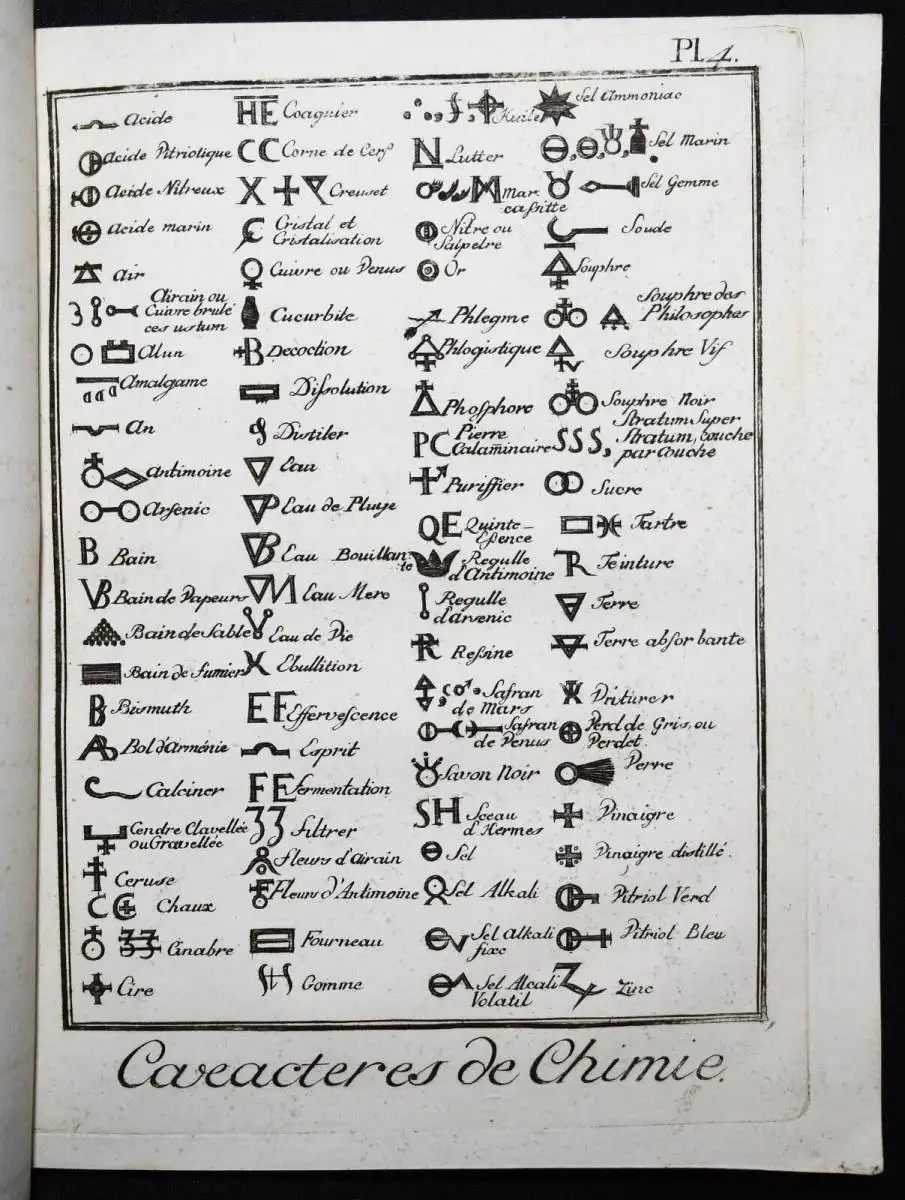 Pl. 4.
Acide
Acide Vitriolique
Acide Nitreux
Acide marin
Air
Airain ou
Cuivre brulé
œs ustum
Alun
Amalgame
An
Antimoine
Arsenic
B Bain
VB Bain de Vapeurs
Bain de Sable
Bain de fumier
B Bismuth
AB Bol d'Arménie
Calciner
Cendre Clavellée
ou Gravellée
Ceruse
C C Chaux
Cinabre
Cire
HE Coaguler
CC Corne de Cerf
X Creuset
Cristal et
Cristalisation
Cuivre ou Venus
Cucurbite
B Decoction
Dissolution
Distiler
Eau
Eau de Pluye
Eau Bouillan-
te
Eau Mere
Eau de Vie
Ebullition
EF Effervescence
Esprit
FE Fermentation
33 Filtrer
Fleurs d'Airain
Fleurs d'Antimoine
Fourneau
Gomme
Huile
Lutter
Mar
cassitte
Nitre ou
Salpetre
Or
Phlegme
Phlogistique
Phosphore
PC Pierre
Calaminaire
Puriffier
QE Quinte-
Essence
Regulle
d'Antimoine
Regulle
d'arsenic
R Ressine
Safran
de Mars
Safran
de Venus
Savon Noir
SH Sceau
d'Hermes
Sel
Sel Alkali
Sel Alkali
fixe
Sel Alcali
Volatil
Sel Ammoniac
Sel Marin
Sel Gemme
Soude
Souphre
Souphre des
Philosophes
Souphre Vif
Souphre Noir
SSS, Stratum Super
Stratum, couche
par couche
Sucre
Tartre
R Teinture
Terre
Terre absorbante
Triturer
Verd de Gris, ou
Verdet.
Verre
Vinaigre
Vinaigre distillé.
Vitriol Verd
Vitriol Bleu
Zinc
Caracteres de Chimie.